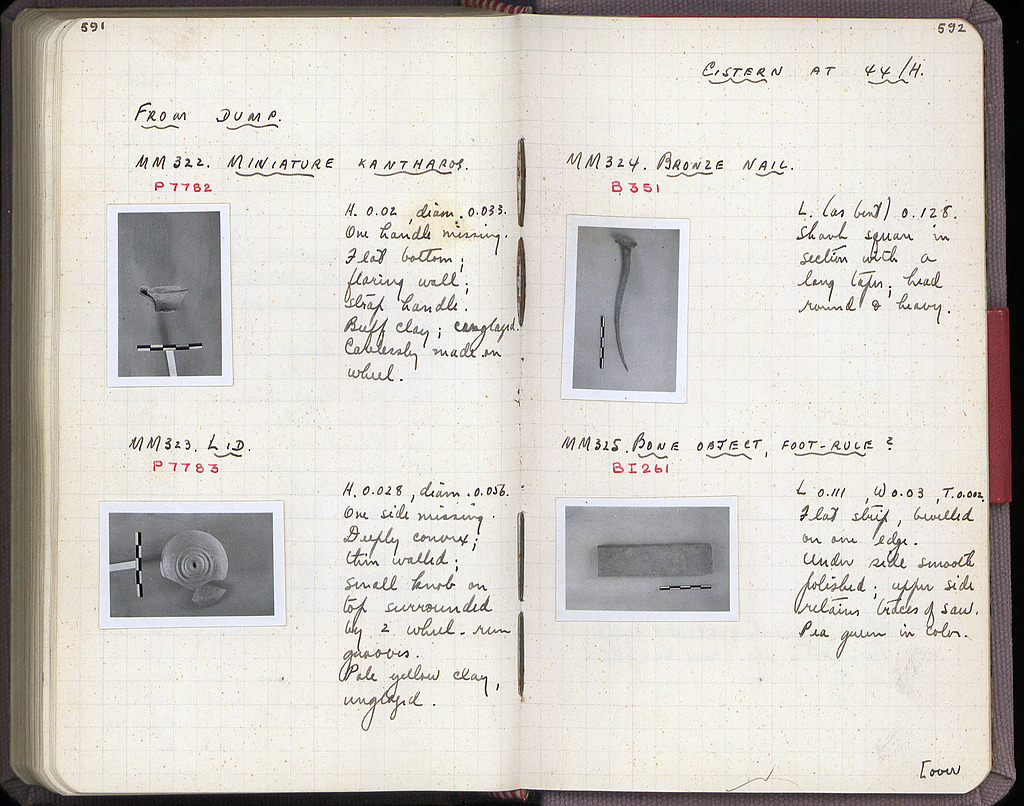 591
FROM DUMP.
MM322. MINIATURE KANTHAROS.
P7782
H. 0.02, diam. 0.033.
One handle missing.
Flat bottom;
flaring wall;
strap handle.
Buff clay; unglazed.
Carelessly made on
wheel.
MM323. LID.
P7783
H. 0.028, diam. 0.056.
One side missing.
Deeply convex;
thin walled;
small knob on
top surrounded
by 2 wheel-run
grooves.
Pale yellow clay,
unglazed.
592
CISTERN AT 44/H.
MM324. BRONZE NAIL.
B351
L. (as bent) 0.128.
Shank square in
section with a
long taper; head
round & heavy.
MM325. BONE OBJECT, FOOT-RULE?
BI261
L 0.111, W 0.03, T. 0.002
Flat strip, bevelled
on one edge.
Under side smooth
polished; upper side
retains traces of saw.
Pea green in color.
[over